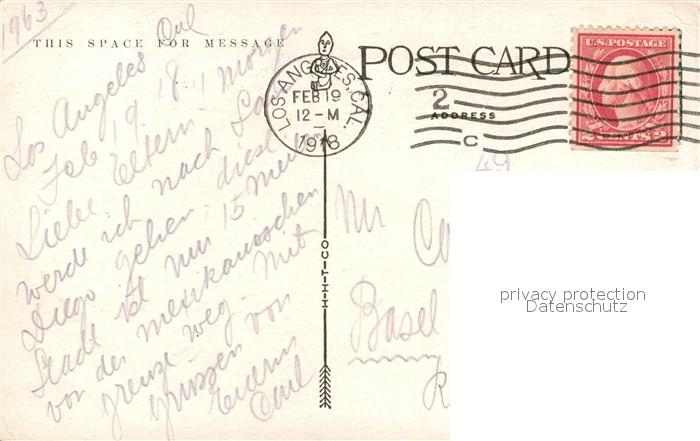 1963
THIS SPACE FOR MESSAGE
POST CARD
U.S. POSTAGE
LOS ANGELES, CAL.
FEB 19
12-M
1918
2
ADDRESS
C
49
Los Angeles Cal
Feb 19 18
Liebe Eltern! Morgen
werde ich nach San
Diego gehen, diese
Stadt ist nur 15 Meilen
von der mexikanischen
grenze weg. Mit
grüssen von
Eurem
Carl
H-H-T-CO
Mr
Basel
privacy protection
Datenschutz